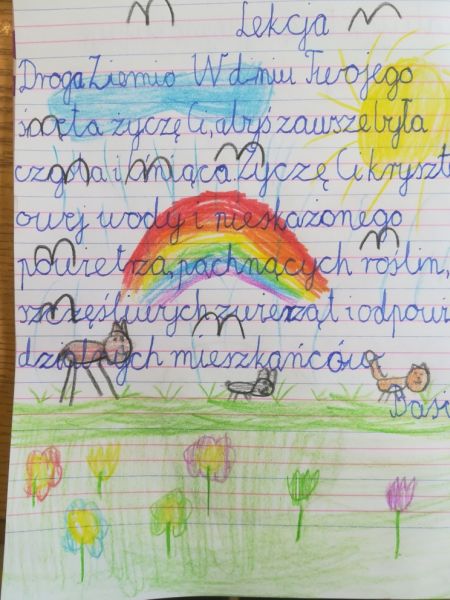 Lekcja
Droga Ziemio W dniu Twojego
święta życzę Ci, abyś zawsze była
czysta i lśniąca Życzę Ci kryszt
owej wody i nieskażonego
powietrza, pachnących roślin,
szczęśliwych zwierząt i odpowi
dzialnych mieszkańców
Basi